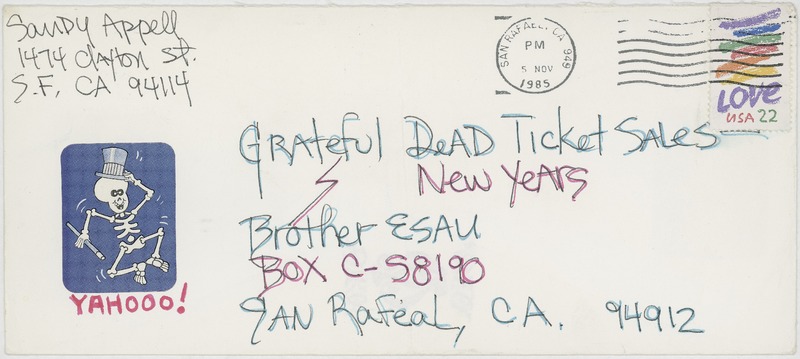 Sandy Appell
1474 Clayton St.
S.F. CA 94114
SAN RAFAEL, CA 949
PM
5 NOV
1985
LOVE
USA 22
GRAteful DeAD Ticket SALES
New YeARS
Brother ESAU
BOX C-S8190
SAN Raféal, CA. 94912
YAHOOO!